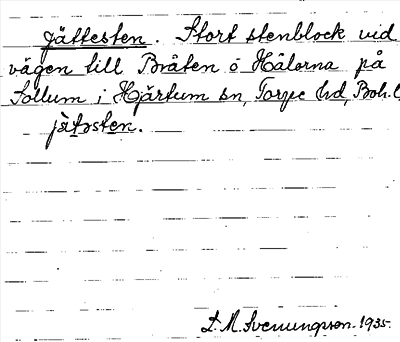 Jättesten. Stort stenblock vid
vägen till Bråten o Hålorna på
Sollum i Hjärtum sn, Torpe hd, Boh.l
jätsten.
D. M. Svenungsson. 1935.